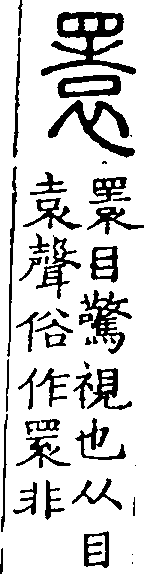 瞏
瞏目驚視也从目
袁聲俗作睘非